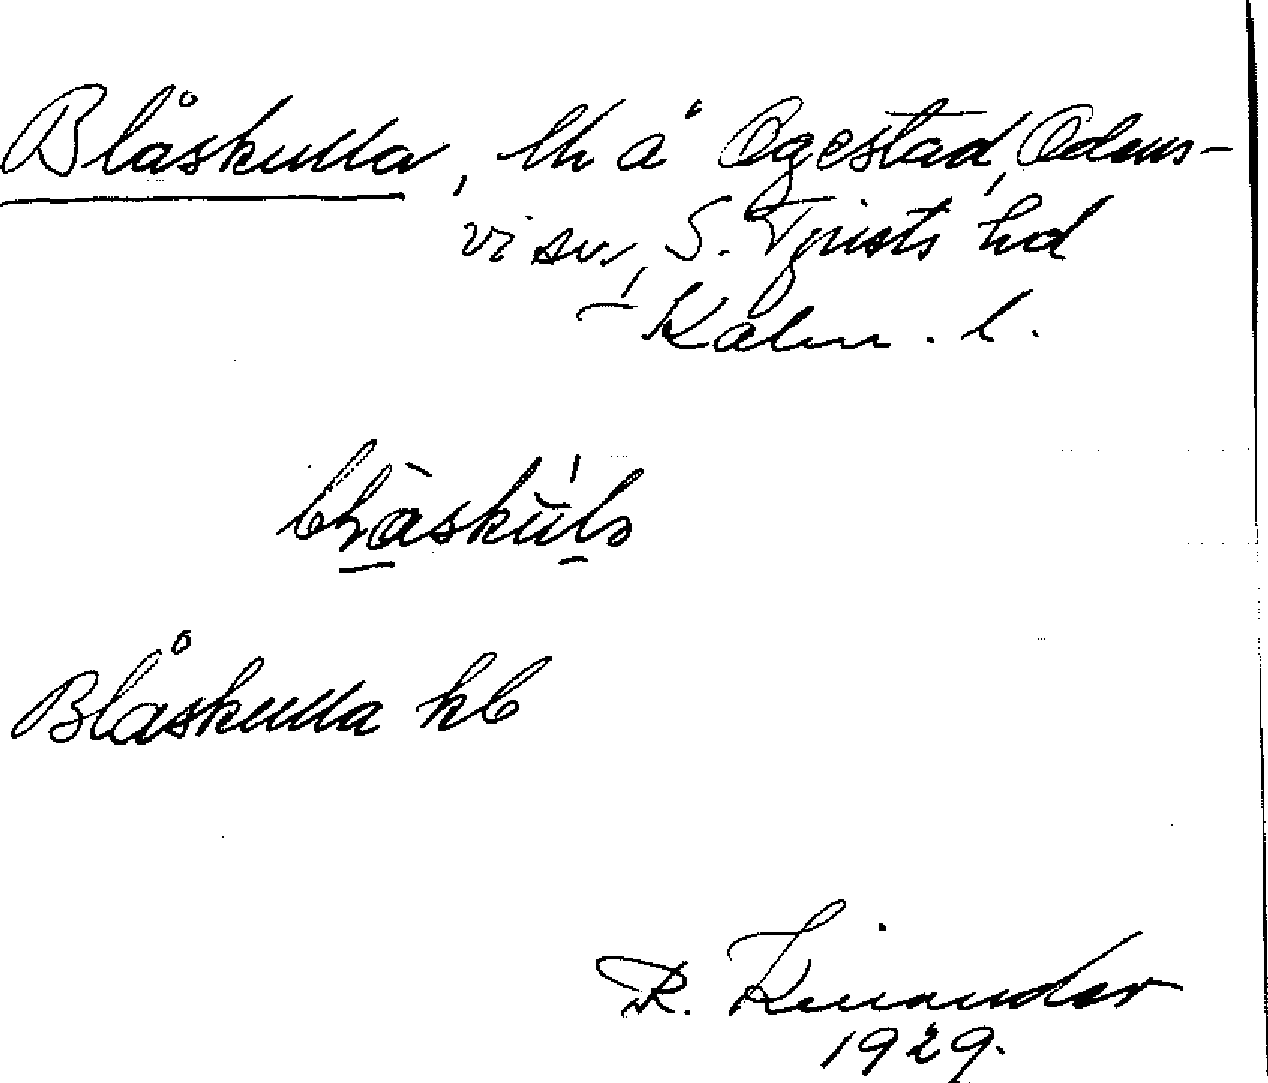 Blåskulla, lh å Ogestad, Odens-
visv, S. Tjusts hd
Kalm. l.
Blåskulla kb
R. Kinander
1929.